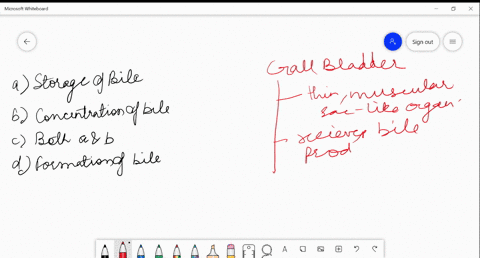 Microsoft Whiteboard
Sign out
a) Storage of Bile
b) Concentration of bile
c) Both a & b
d) Formation of bile
Gall Bladder
thin, muscular
sac-like organ.
recieves bile
prod